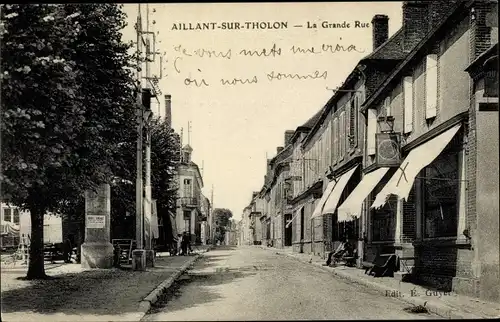 AILLANT-SUR-THOLON — La Grande Rue
je vous mets une croix
où nous sommes
Edit. E. Guyet